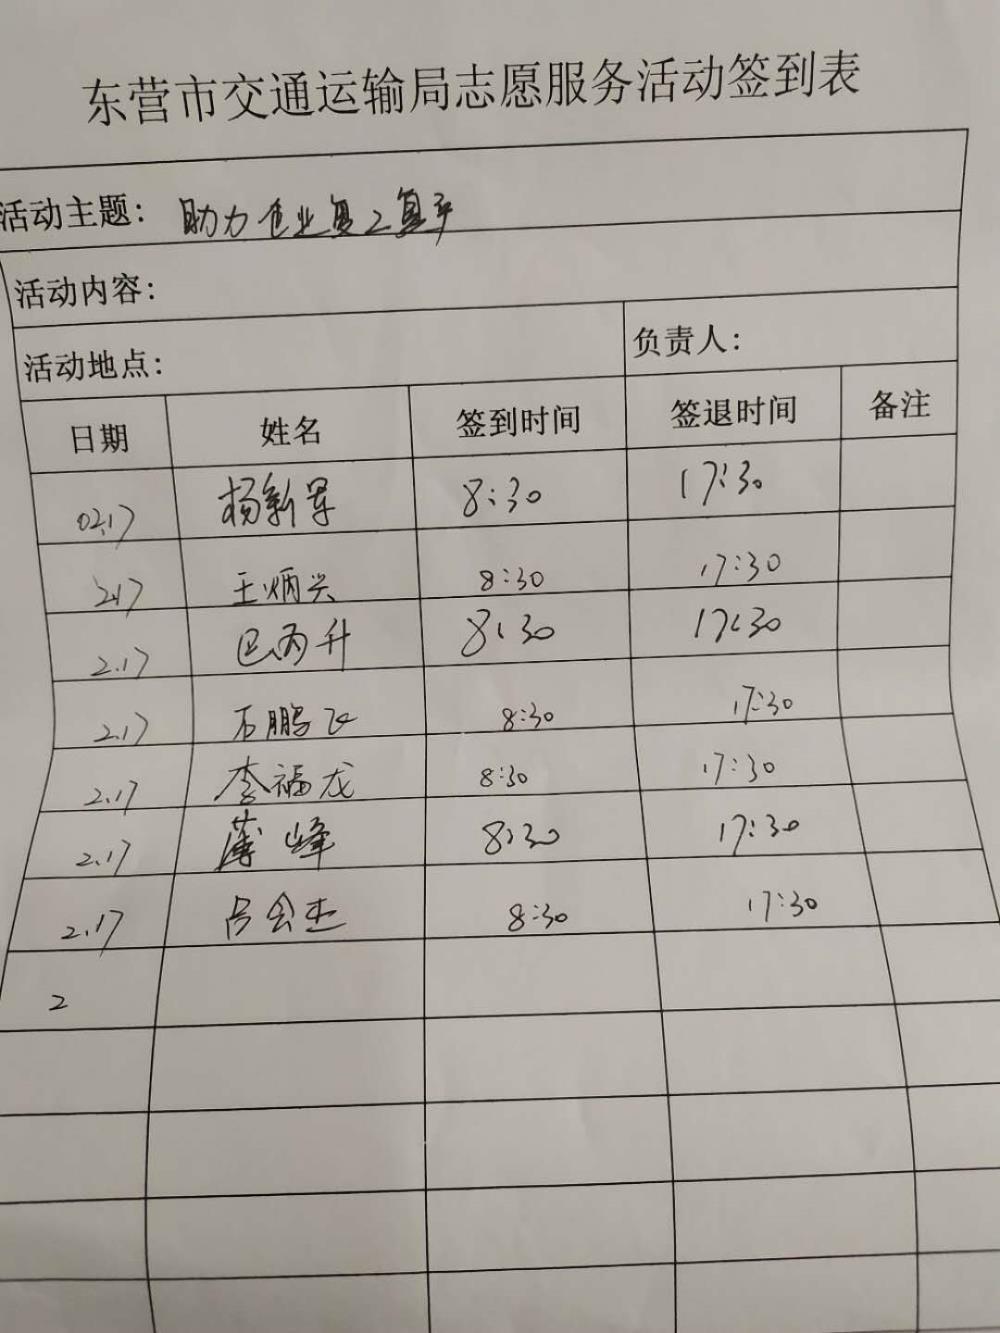 东营市交通运输局志愿服务活动签到表
活动主题：助力企业复工复产
活动内容：
活动地点： 负责人：
日期 姓名 签到时间 签退时间 备注
02.17 杨新军 8:30 17:30
2.17 王炳兴 8:30 17:30
2.17 巴丙升 8:30 17:30
2.17 石鹏飞 8:30 17:30
2.17 李福龙 8:30 17:30
2.17 薄峰 8:30 17:30
2.17 吕会杰 8:30 17:30
2